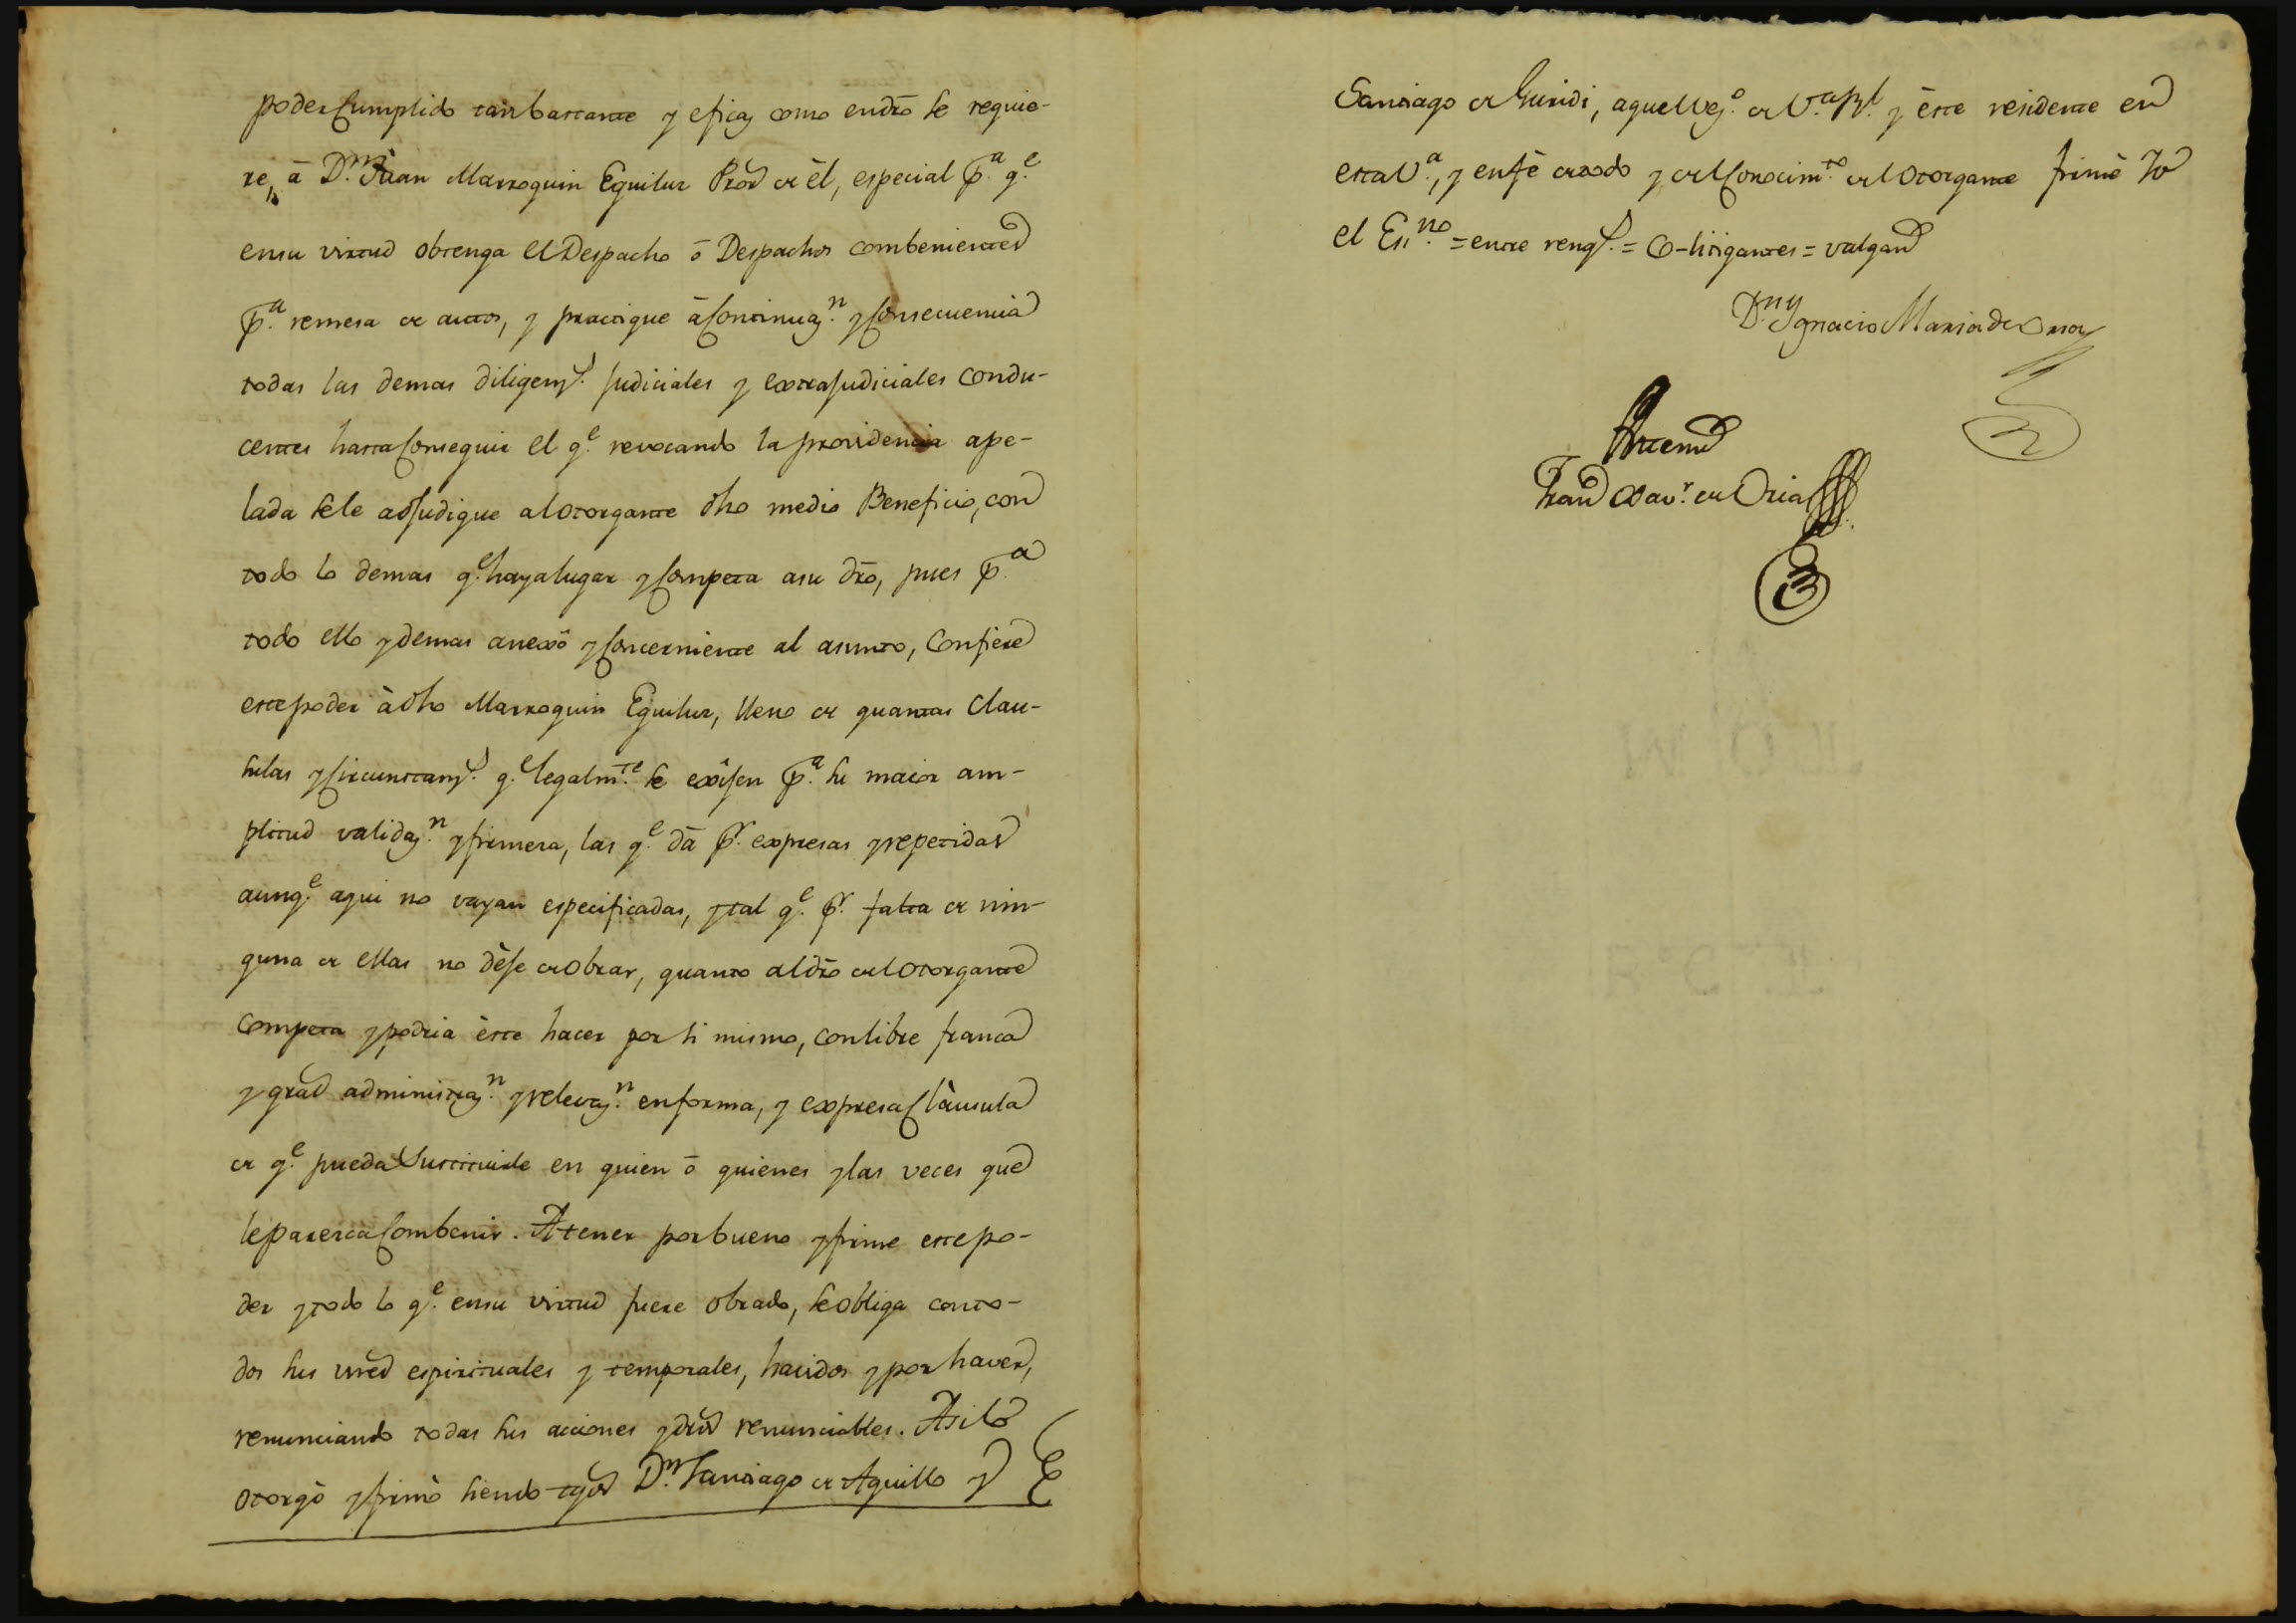 poder Cumplido tan bastante y eficaz como en dro se requie-
re, à D.n Juan Marroquin Eguiluz Pror de èl, especial p.a q.e
en su virtud obtenga el Despacho ò Despachos combenientes
p.a remesa de autos, y practique à Continuaz.n y Consecuencia
todas las demas diligenz.s judiciales y extrajudiciales condu-
centes hasta Conseguir el q.e revocando la providencia ape-
lada se le adjudique al otorgante dho medio Beneficio, con
todo lo demas q.e haya lugar y Competa a su dro, pues p.a
todo ello y demas anexò y Concerniente al asunto, Confiere
este poder à dho Marroquin Eguiluz, lleno de quantas Clau-
sulas y Circunstanz.s q.e legalm.te se exijen p.a su maior am-
plitud validaz.n y firmera, las q.e dà p.r expresas y repetidas
aunq.e aqui no vayan especificadas, y tal q.e p.r falta de nin-
guna de ellas no dèje de obrar, quanto al dro del otorgante
Competa y podria èste hacer por si mismo, con libre franca
y gral administraz.n y relevaz.n en forma, y expresa Clàusula
de q.e pueda Substituirle en quien ò quienes y las veces que
le paresca Combenir. A tener por bueno y firme este po-
der y todo lo q.e en su virtud fuere obrado, se obliga con to-
dos sus vnes espirituales y temporales, havidos y por haver,
renunciando todas sus acciones y dros renunciables. Asi lo
otorgò y firmò siendo tgos D.n Santiago de Aguillo y
Santiago de Guridi, aquel vez.o de V.a R.l y èste residente en
esta V.a, y en fè de todo y del Conocim.to del otorgante firmè Yo
el Es.no = entre rengs. = Co-litigantes = valgan
D.n Ygnacio Maria de
Antemi
Fran Xav.r de Oria